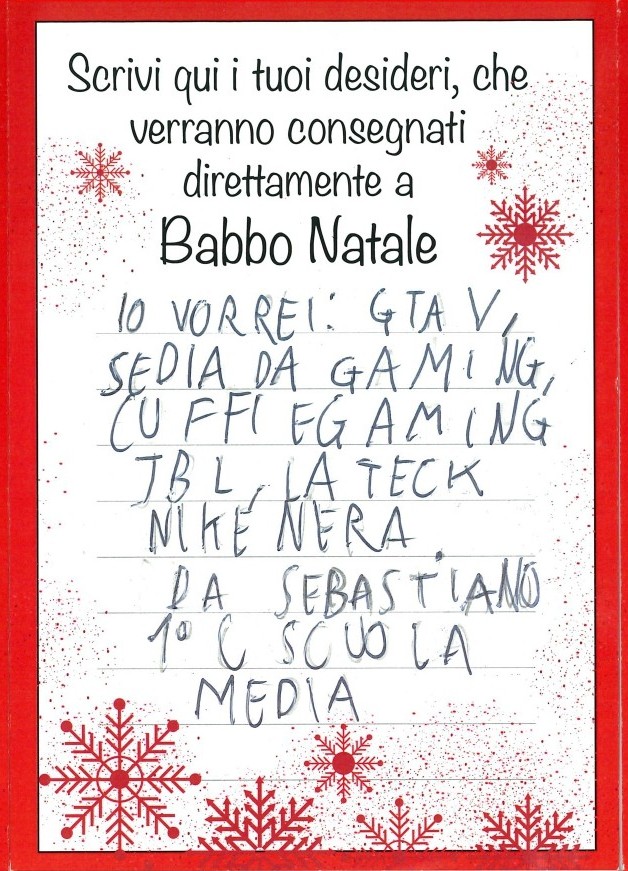 Scrivi qui i tuoi desideri, che
verranno consegnati
direttamente a
Babbo Natale
IO VORREI: GTA V,
SEDIA DA GAMING,
CUFFI EGAMING
JBL, LA TECK
NIKE NERA.
DA SEBASTIANO
1º C SCUOLA
MEDIA